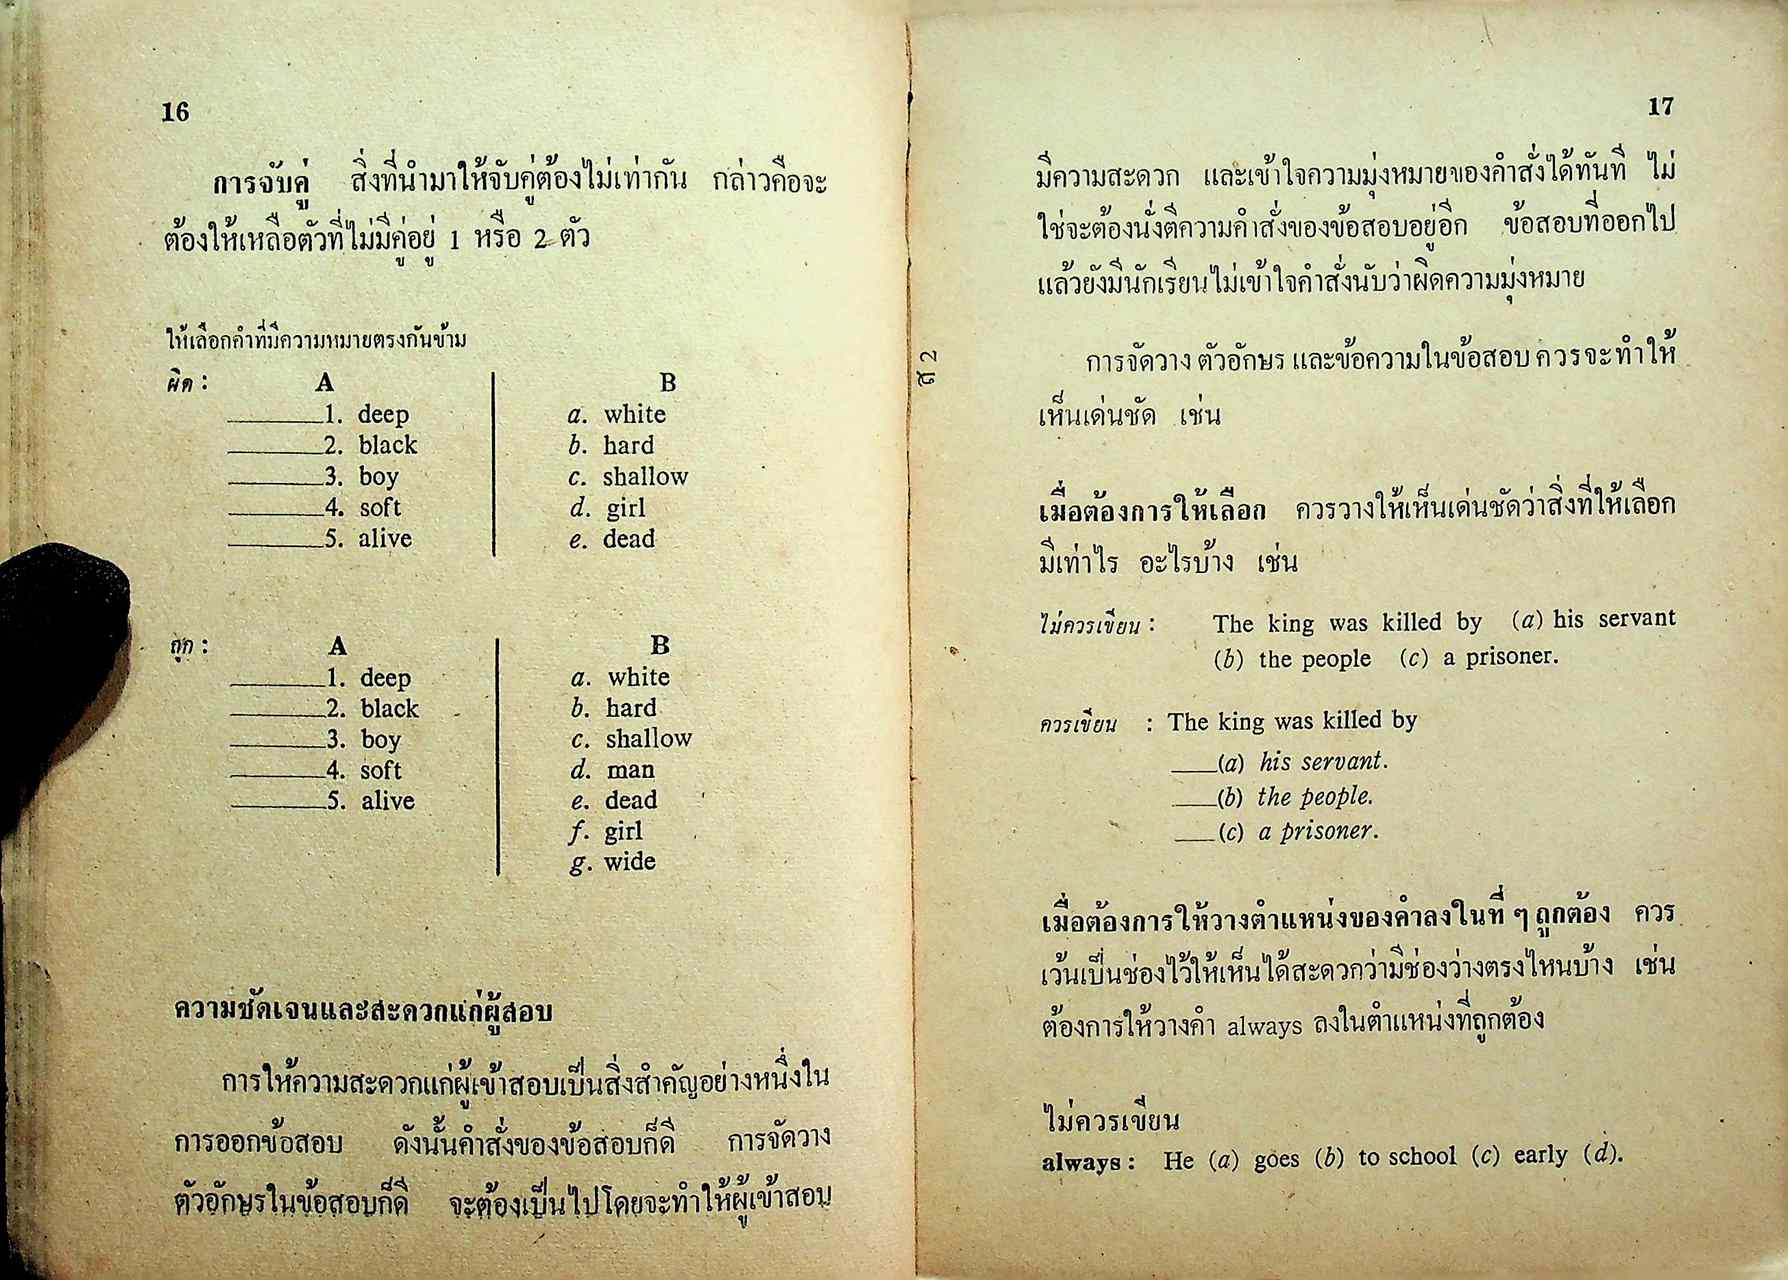 16
การจับคู่ สิ่งที่นำมาให้จับคู่ต้องไม่เท่ากัน กล่าวคือจะ
ต้องให้เหลือตัวที่ไม่มีคู่อยู่ 1 หรือ 2 ตัว
ให้เลือกคำที่มีความหมายตรงกันข้าม
ผิด : A B
______1. deep a. white
______2. black b. hard
______3. boy c. shallow
______4. soft d. girl
______5. alive e. dead
ถูก : A B
______1. deep a. white
______2. black b. hard
______3. boy c. shallow
______4. soft d. man
______5. alive e. dead
f. girl
g. wide
ความชัดเจนและสะดวกแก่ผู้สอบ
การให้ความสะดวกแก่ผู้เข้าสอบเป็นสิ่งสำคัญอย่างหนึ่งใน
การออกข้อสอบ ดังนั้นคำสั่งของข้อสอบก็ดี การจัดวาง
ตัวอักษรในข้อสอบก็ดี จะต้องเป็นไปโดยจะทำให้ผู้เข้าสอบ
17
มีความสะดวก และเข้าใจความมุ่งหมายของคำสั่งได้ทันที ไม่
ใช่จะต้องนั่งตีความคำสั่งของข้อสอบอยู่อีก ข้อสอบที่ออกไป
แล้วยังมีนักเรียนไม่เข้าใจคำสั่งนับว่าผิดความมุ่งหมาย
การจัดวาง ตัวอักษร และข้อความในข้อสอบ ควรจะทำให้
เห็นเด่นชัด เช่น
เมื่อต้องการให้เลือก ควรวางให้เห็นเด่นชัดว่าสิ่งที่ให้เลือก
มีเท่าไร อะไรบ้าง เช่น
ไม่ควรเขียน : The king was killed by (a) his servant
(b) the people (c) a prisoner.
ควรเขียน : The king was killed by
___(a) his servant.
___(b) the people.
___(c) a prisoner.
เมื่อต้องการให้วางตำแหน่งของคำลงในที่ ๆ ถูกต้อง ควร
เว้นเป็นช่องไว้ให้เห็นได้สะดวกว่ามีช่องว่างตรงไหนบ้าง เช่น
ต้องการให้วางคำ always ลงในตำแหน่งที่ถูกต้อง
ไม่ควรเขียน
always : He (a) goes (b) to school (c) early (d).
ส 2